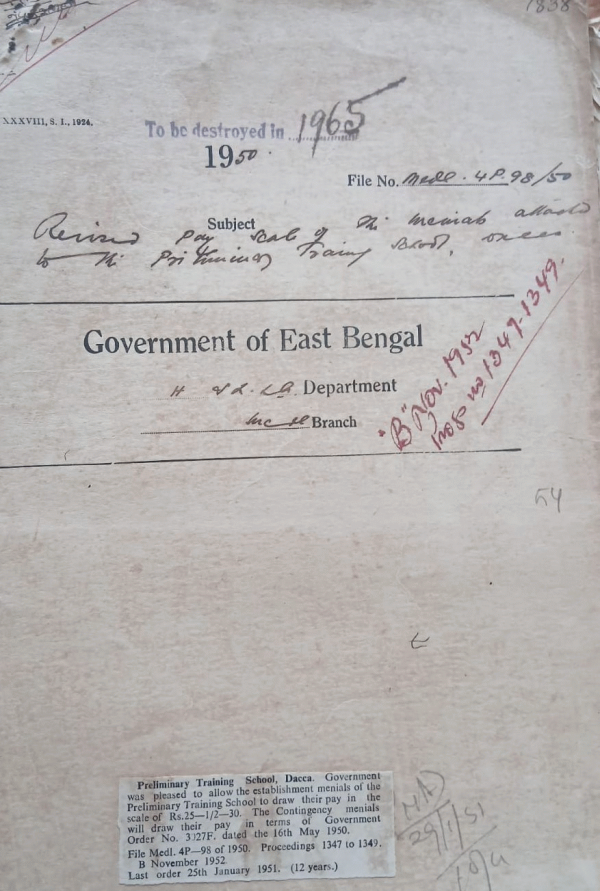 1838
XXXVIII, S. I., 1924.
To be destroyed in 1965
1950.
File No. Medl. 4P-98/50
Subject
Revised pay scale of the menials attached
to the Preliminary Training School, Dacca.
Government of East Bengal
H & L.S.G. Department
Medl Branch
"B" Nov. 1952
Progs no 1347-1349.
54
Preliminary Training School, Dacca. Government
was pleased to allow the establishment menials of the
Preliminary Training School to draw their pay in the
scale of Rs.25—1/2—30. The Contingency menials
will draw their pay in terms of Government
Order No. 3027F. dated the 16th May 1950.
File Medl. 4P—98 of 1950. Proceedings 1347 to 1349.
B November 1952
Last order 25th January 1951. (12 years.)
29/1/51